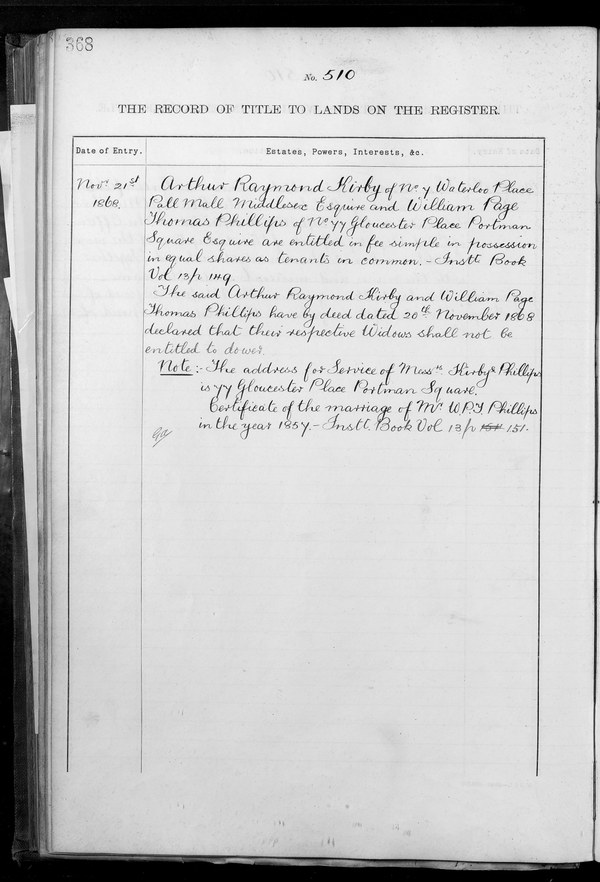 368
No. 510
THE RECORD OF TITLE TO LANDS ON THE REGISTER.
Date of Entry.
Estates, Powers, Interests, &c.
Novr 21st
1868.
Arthur Raymond Kirby of No 7 Waterloo Place
Pall Mall Middlesex Esquire and William Page
Thomas Phillips of No 77 Gloucester Place Portman
Square Esquire are entitled in fee simple in possession
in equal shares as tenants in common. - Instt Book
Vol 13/p 149
The said Arthur Raymond Kirby and William Page
Thomas Phillips have by deed dated 20th November 1868
declared that their respective Widows shall not be
entitled to dower.
Note :- The address for Service of Messrs Kirby & Phillips
is 77 Gloucester Place Portman Square.
Certificate of the marriage of Mr W.P.T Phillips
in the year 1857. - Instt. Book Vol 13/p 151.